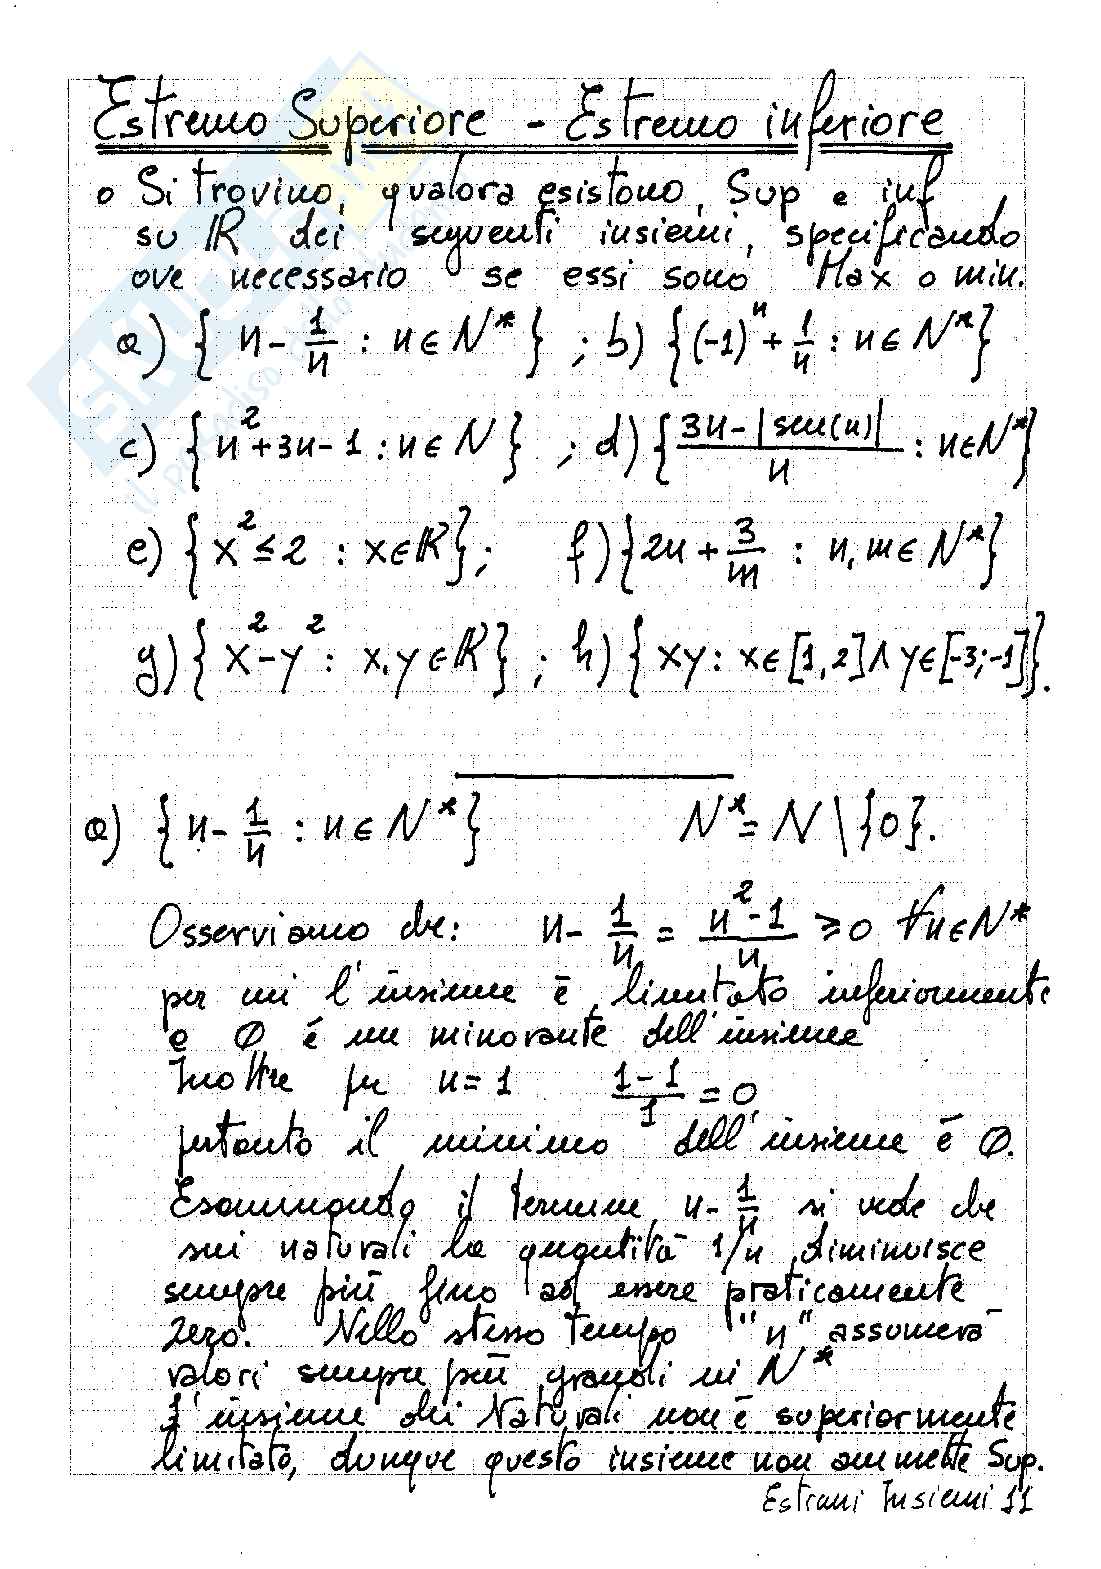 Estremo Superiore - Estremo inferiore
o Si trovino, qualora esistono, Sup e inf
su ℝ dei seguenti insiemi, specificando
ove necessario se essi sono Max o min.
a) { n - 1/n : n ∈ N* } ; b) { (-1)^n + 1/n : n ∈ N* }
c) { n² + 3n - 1 : n ∈ N } ; d) { (3n - |sen(n)|)/n : n ∈ N* }
e) { x² ≤ 2 : x ∈ ℝ } ; f) { 2n + 3/m : n, m ∈ N* }
g) { x² - y² : x, y ∈ ℝ } ; h) { xy : x ∈ [1,2] ∧ y ∈ [-3;-1] }.
a) { n - 1/n : n ∈ N* } N* = N \ {0}.
Osserviamo che: n - 1/n = (n² - 1)/n ≥ 0 ∀n ∈ N*
per cui l'insieme è limitato inferiormente
e 0 è un minorante dell'insieme
Inoltre per n = 1 (1-1)/1 = 0
pertanto il minimo dell'insieme è 0.
Esaminando il termine n - 1/n si vede che
sui naturali la quantità 1/n diminuisce
sempre più fino ad essere praticamente
zero. Nello stesso tempo "n" assumerà
valori sempre più grandi in N*
L'insieme dei Naturali non è superiormente
limitato, dunque questo insieme non ammette Sup.
Estremi Insiemi 11